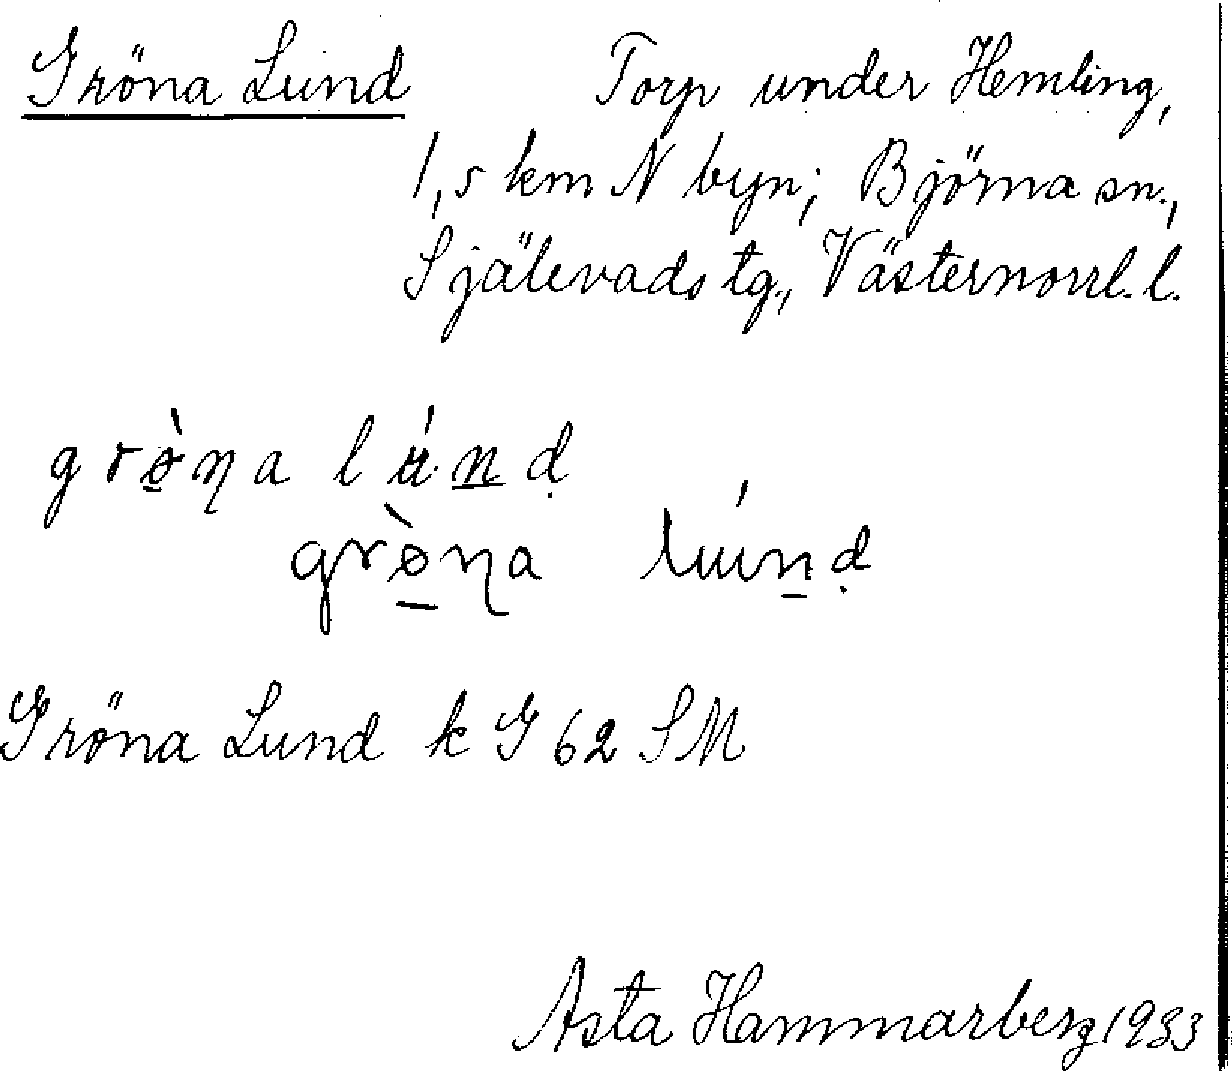 Gröna Lund Torp under Hemling,
1,5 km N byn; Björna sn.,
Själevads tg., Västernorrl. l.
grø̱̀ŋa lún̲ḍ
grø̱̀ŋa lúṉḍ
Gröna Lund k G 62 SM
Asta Hammarberg 1933